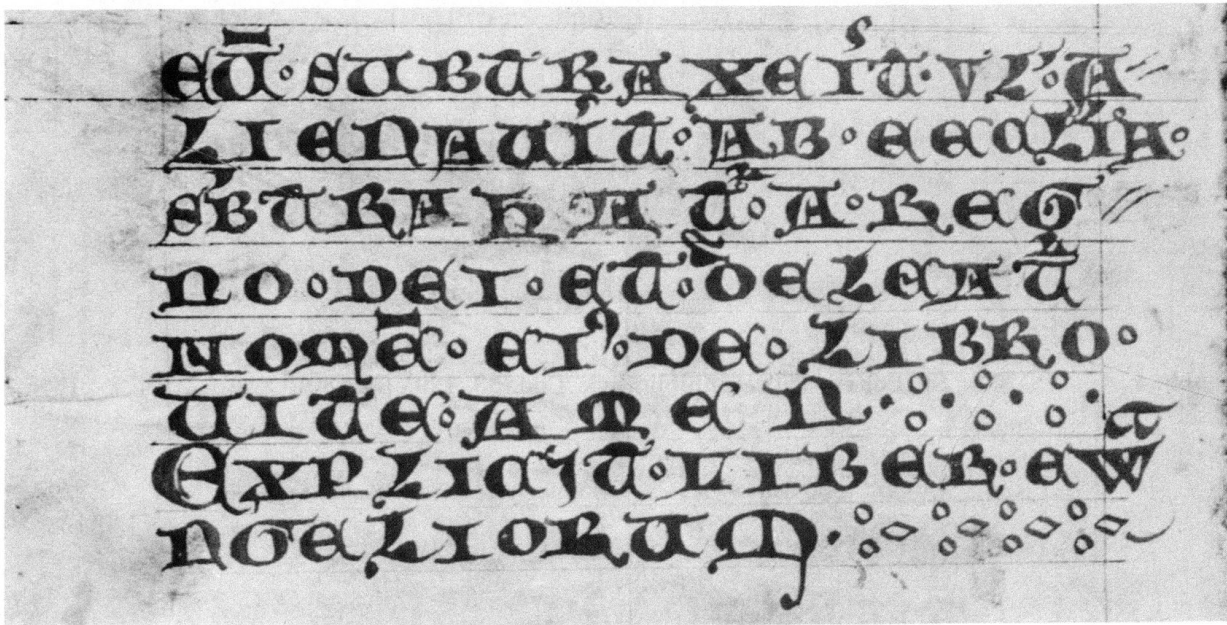 EŪ· SUBTRAXEI᷒T· VL'· A//
LIENAUI᷒T· AB· EECLĪA·
S'BTRAHAT᷑· A· REG//
NO· DEI· ET· DELEAT᷑
NOMĒ· EIꝰ· DE· LIBRO·
UITE· AMEN·
EXPLICIT· LIBER· EWᵃ
NGELIORUM·